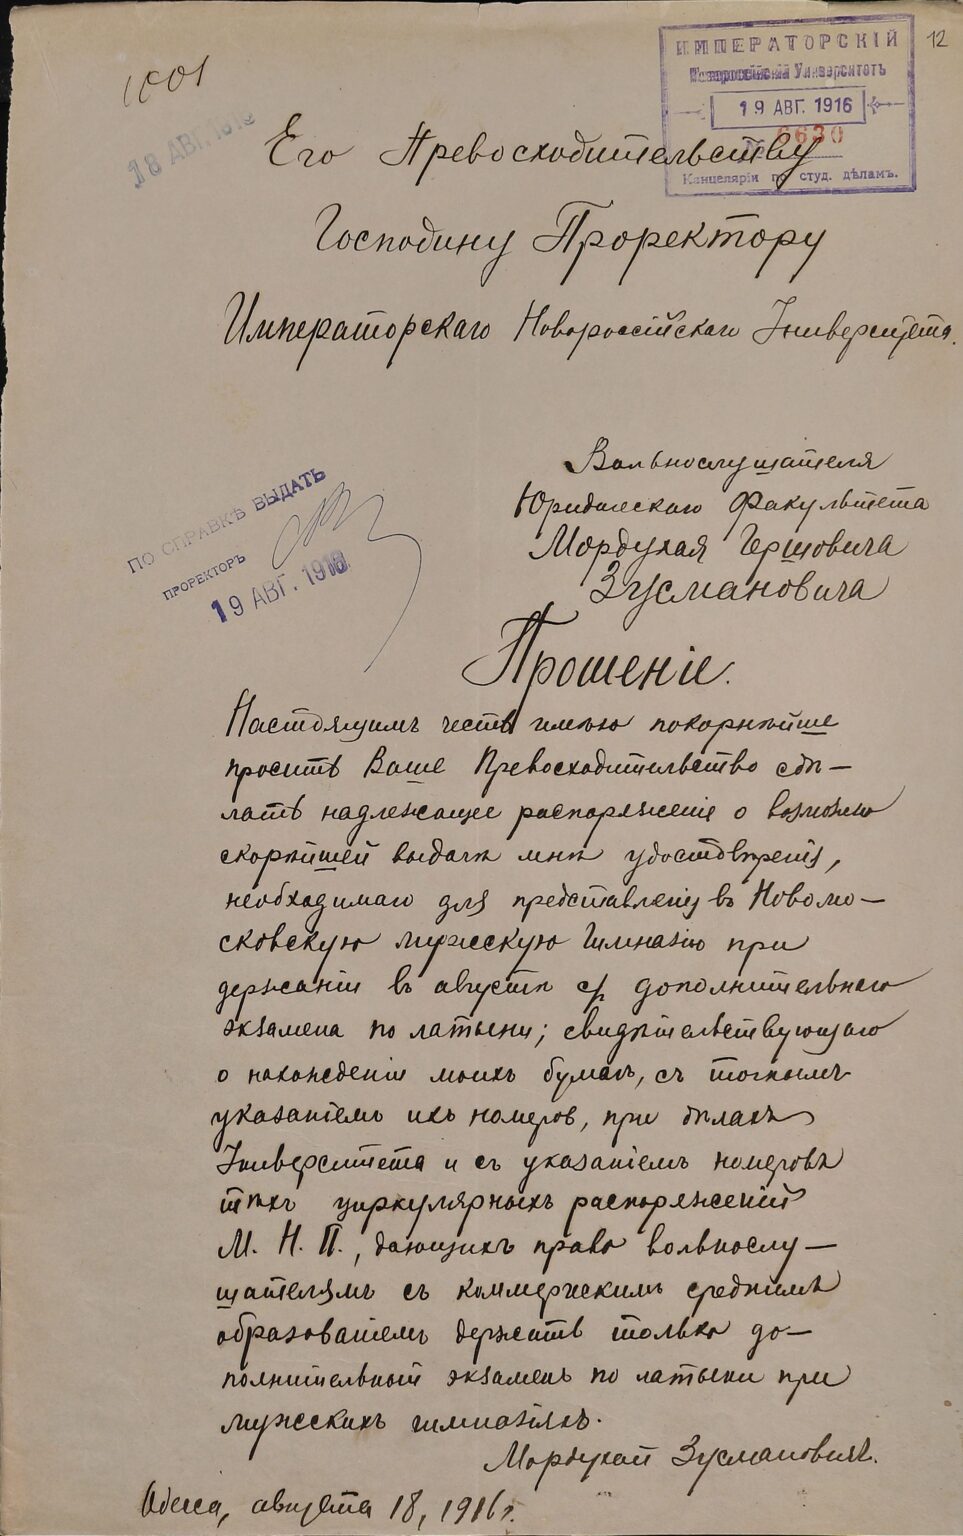 12
ИМПЕРАТОРСКІЙ
Новороссійскій Университетъ
19 АВГ. 1916
№ 6630
Канцелярія по студ. дѣламъ.
18 АВГ. 1916
Его Превосходительству
Господину Проректору
Императорскаго Новороссійскаго Университета.
Вольнослушателя
Юридическаго Факультета
Мордухая Гершовича
Зусмановича
ПО СПРАВКѢ ВЫДАТЬ
ПРОРЕКТОРЪ
19 АВГ. 1916
Прошеніе.
Настоящимъ честь имѣю покорнѣйше
просить Ваше Превосходительство сдѣ-
лать надлежащее распоряженіе о возможно
скорѣйшей выдачѣ мнѣ удостовѣренія,
необходимаго для представленія въ Новомо-
сковскую мужскую гимназію при
держаніи въ августѣ с/г дополнительнаго
экзамена по латыни; свидѣтельствующаго
о нахожденіи моихъ бумагъ, съ точнымъ
указаніемъ ихъ номеровъ, при дѣлахъ
Университета и съ указаніемъ номеровъ
тѣхъ циркулярныхъ распоряженій
М. Н. П., дающихъ право вольнослу-
шателямъ съ коммерческимъ среднимъ
образованіемъ держать только до-
полнительный экзаменъ по латыни при
мужскихъ гимназіяхъ.
Мордухай Зусмановичъ.
Одесса, августа 18, 1916 г.